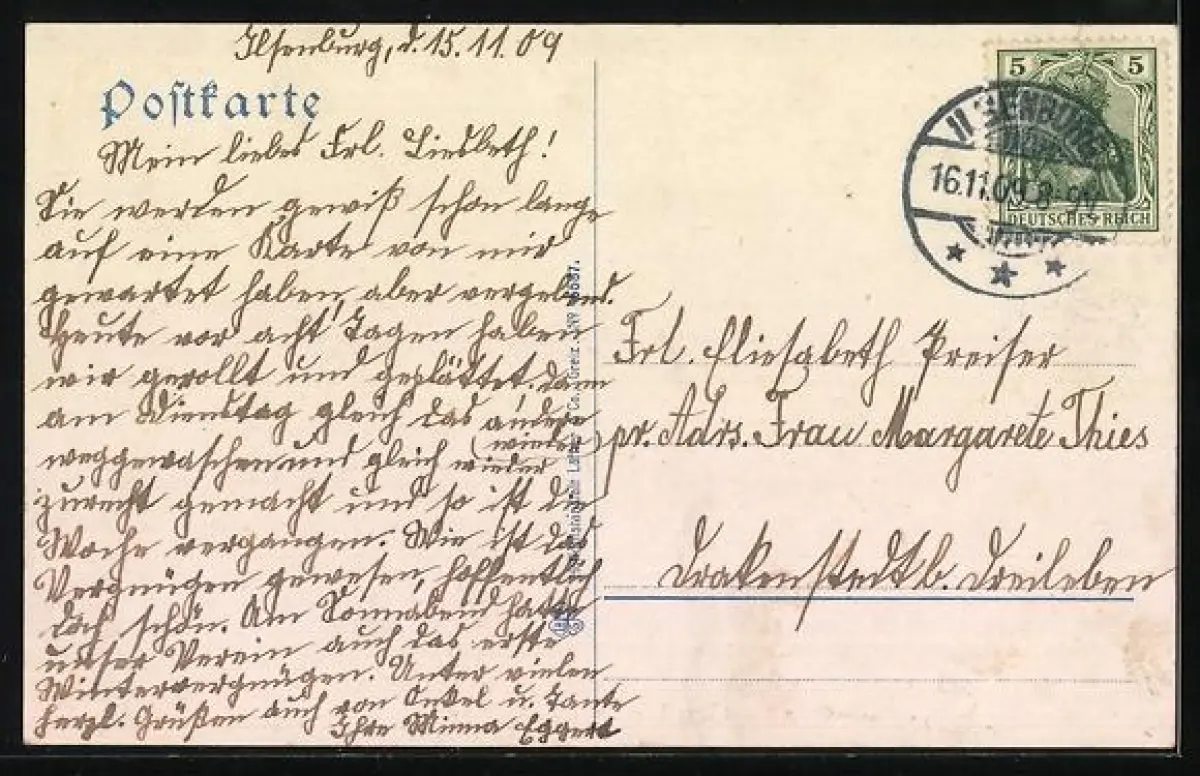 Ilsenburg, d. 15.11.09
Postkarte
Mein liebes Frl. Liesbeth!
Sie werden gewiß schon lange
auf eine Karte von mir
gewartet haben, aber vergebens.
Heute vor acht Tagen haben
wir gerollt und geplättet. Dann
am Dienstag gleich das andere
(wieder)
weggewaschen und gleich wieder
zurecht gemacht und so ist die
Woche vergangen. Wie ist das
Vergnügen gewesen, hoffentlich
doch schön. Am Sonnabend hatte
unser Verein auch das erste
Wintervergnügen. Unter vielen
herzl. Grüßen auch von Onkel u. Tante
Ihre Minna Eggert
5 5
DEUTSCHES REICH
ILSENBURG
16.11.09. 8-9V
Frl. Eliesabeth Preiser
pr. Adrs. Frau Margarete Thies
Drakenstedt b. Dreileben